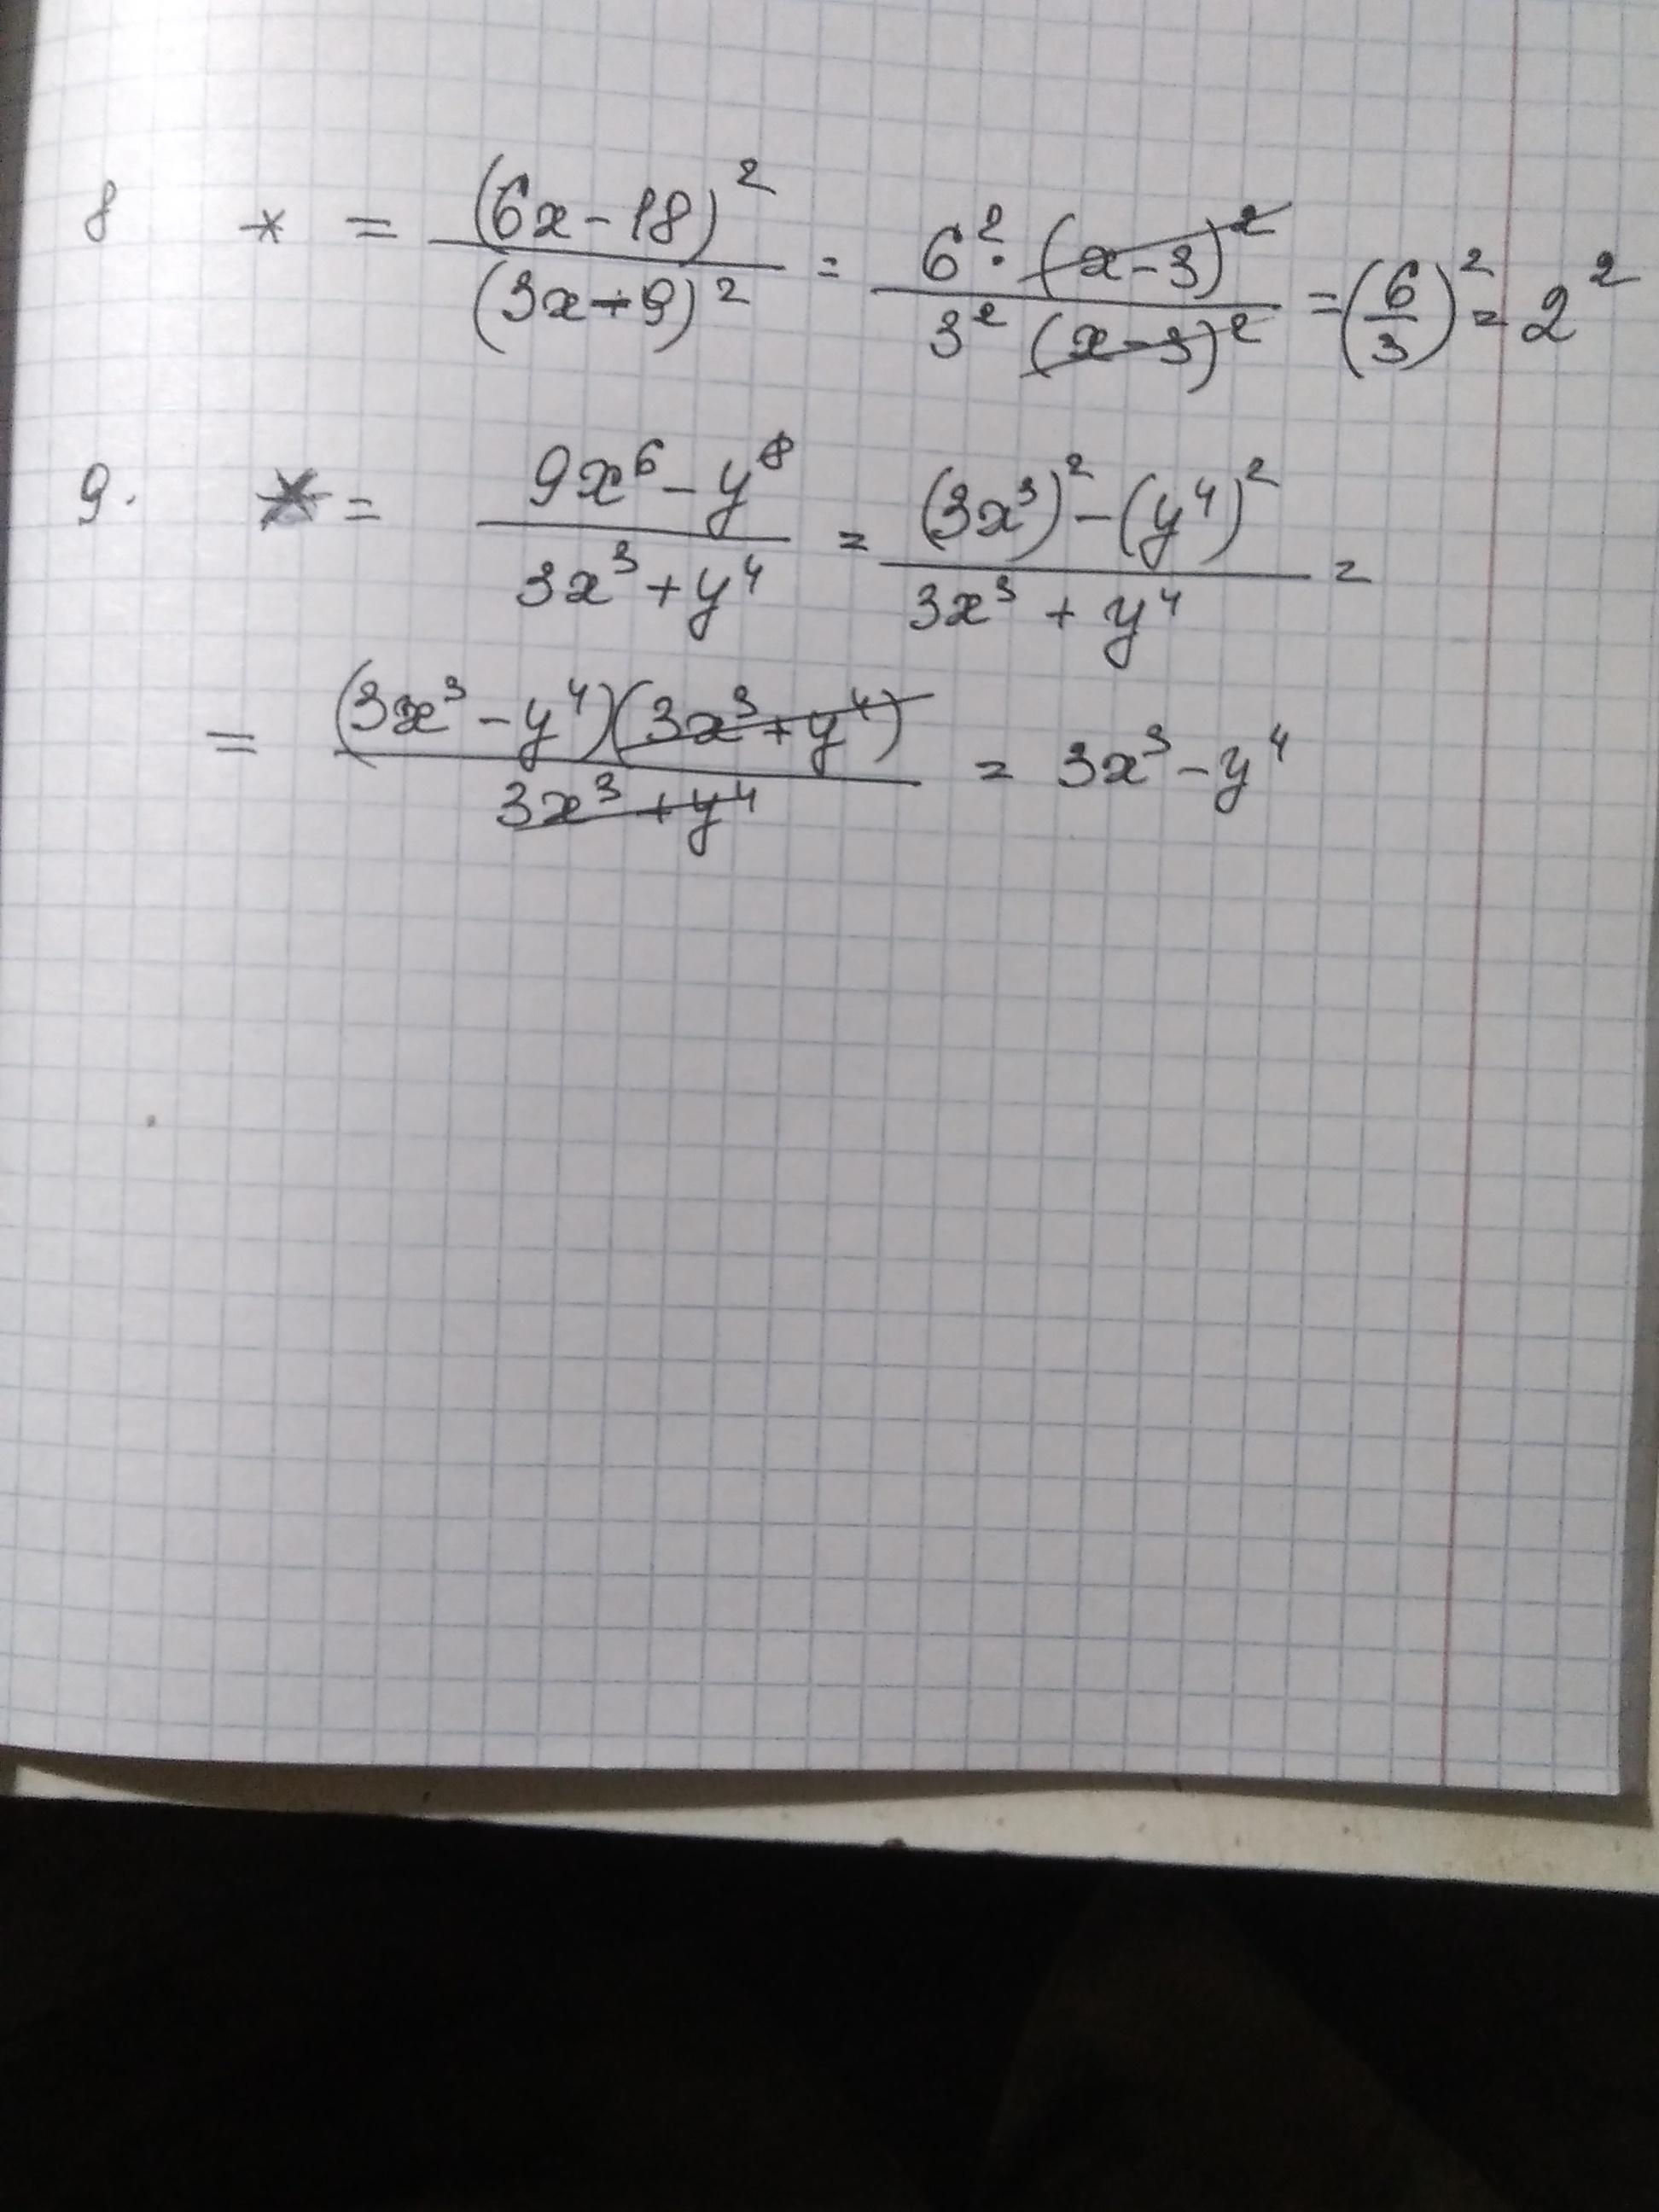 8 * = (6x-18)² / (3x-9)² = 6²·(x-3)² / 3²(x-3)² = (6/3)² = 2²
9. * = 9x⁶-y⁸ / 3x³+y⁴ = (3x³)²-(y⁴)² / 3x³+y⁴ =
= (3x³-y⁴)(3x³+y⁴) / 3x³+y⁴ = 3x³-y⁴